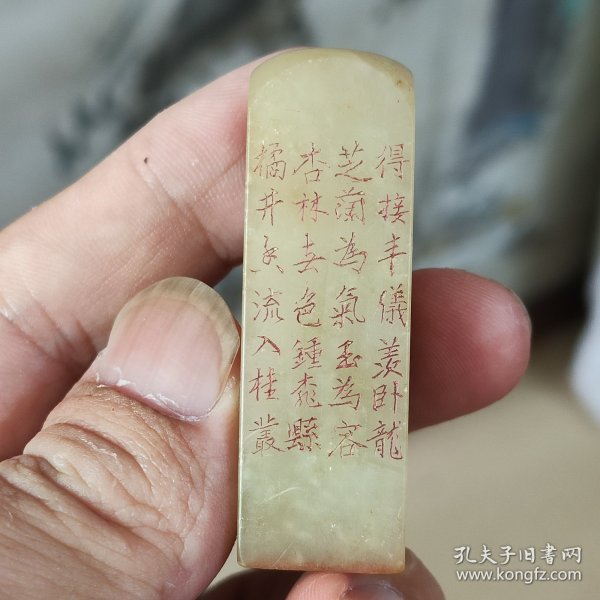 得接丰儀羨卧龍
芝蘭為氣玉為容
杏林春色鍾 縣
橘井泉流入桂叢
孔夫子旧書网
www.kongfz.com